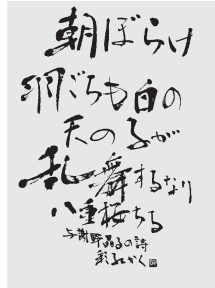 朝ぼらけ
羽ごろも白の
天の子が
乱舞するなり
八重桜ちる
与謝野晶子の詩
彩かく